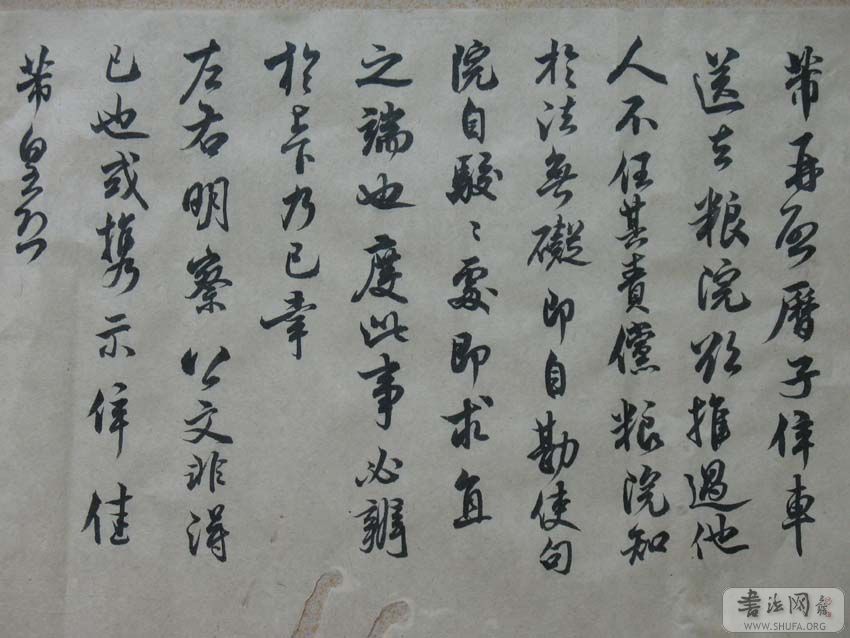 芾再啓曆子倅車
送去粮院欲推過他
人不任其責儻粮院知
於法無礙即自勘使句
院自駮〻處即求直
之端也度此事必辨
於上下乃已幸
左右明察公文非得
已也或攜示倅佳
芾皇恐
書法网
WWW.SHUFA.ORG